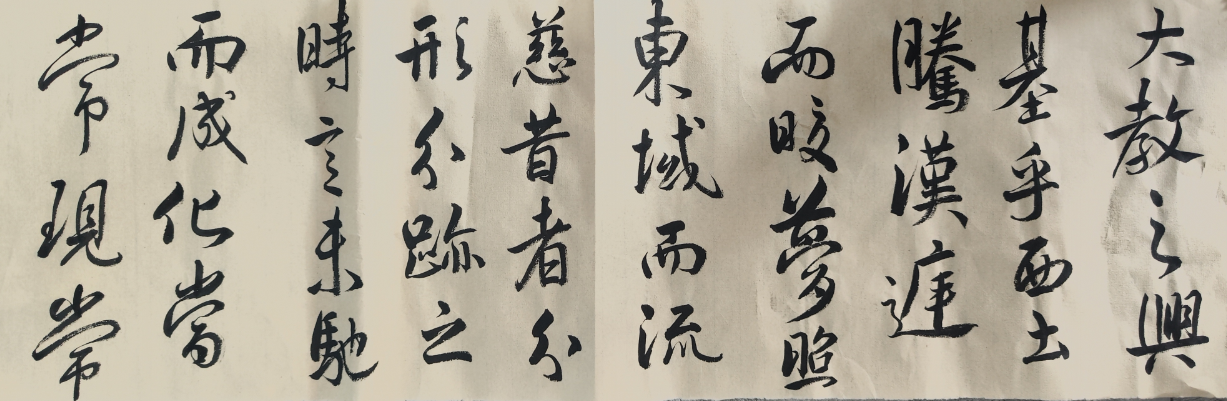 大教之興
基乎西土
騰漢庭
而皎夢照
東域而流
慈昔者分
形分跡之
時言未馳
而成化當
常現常